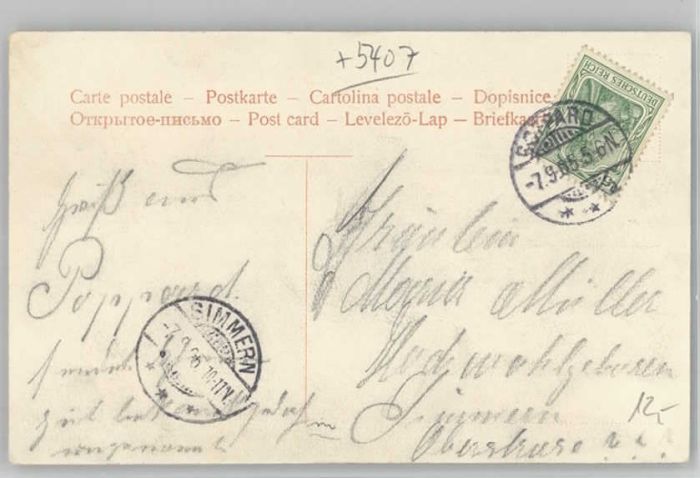 +5407
Carte postale – Postkarte – Cartolina postale – Dopisnice
Открытое-письмо – Post card – Levelezö-Lap – Briefkaart
DEUTSCHES REICH
BOPPARD
-7.9.06.5-6N.
Gruß aus
Boppard
SIMMERN
-7.9.06.10-11V.
ungenannt
Fräulein
Maria Müller
Hochwohlgeboren
in Simmern
Oberstrasse
12-